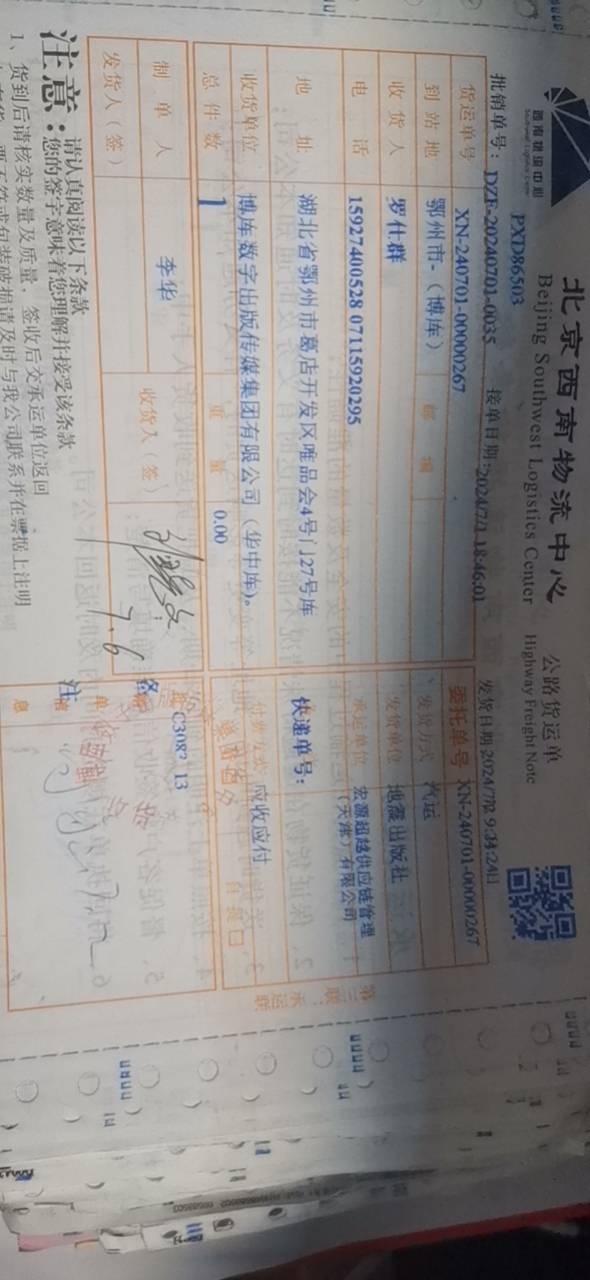 西南物流中心
Southwest Logistics Center
北京西南物流中心 公路货运单
Beijing Southwest Logistics Center Highway Freight Note
PXD86503
批销单号： DZF-20240701-0035 接单日期：2024/7/1 18:46:01 发货日期
货运单号 XN-240701-00000267 委托单号 XN-240701-00000267
到站地 鄂州市-（博库） 邮编 发货方式 汽运
收货人 罗仕群 发货单位 地震出版社
电话 15927400528 07115920295 承运单位 宏源超越供应链管理（天津）有限公司
地址 湖北省鄂州市葛店开发区唯品会4号门27号库 快递单号：
收货单位 博库数字出版传媒集团有限公司（华中库）。 付款方式 应收应付
总件数 1 重量 0.00 自提 口
制单人 李华 收货人（签） 备注
发货人（签） 7.6
第三联：承运联
注意： 请认真阅读以下条款
您的签字意味着您理解并接受该条款
1、货到后请核实数量及质量，签收后交承运单位返回
及时与我公司联系并在票据上注明